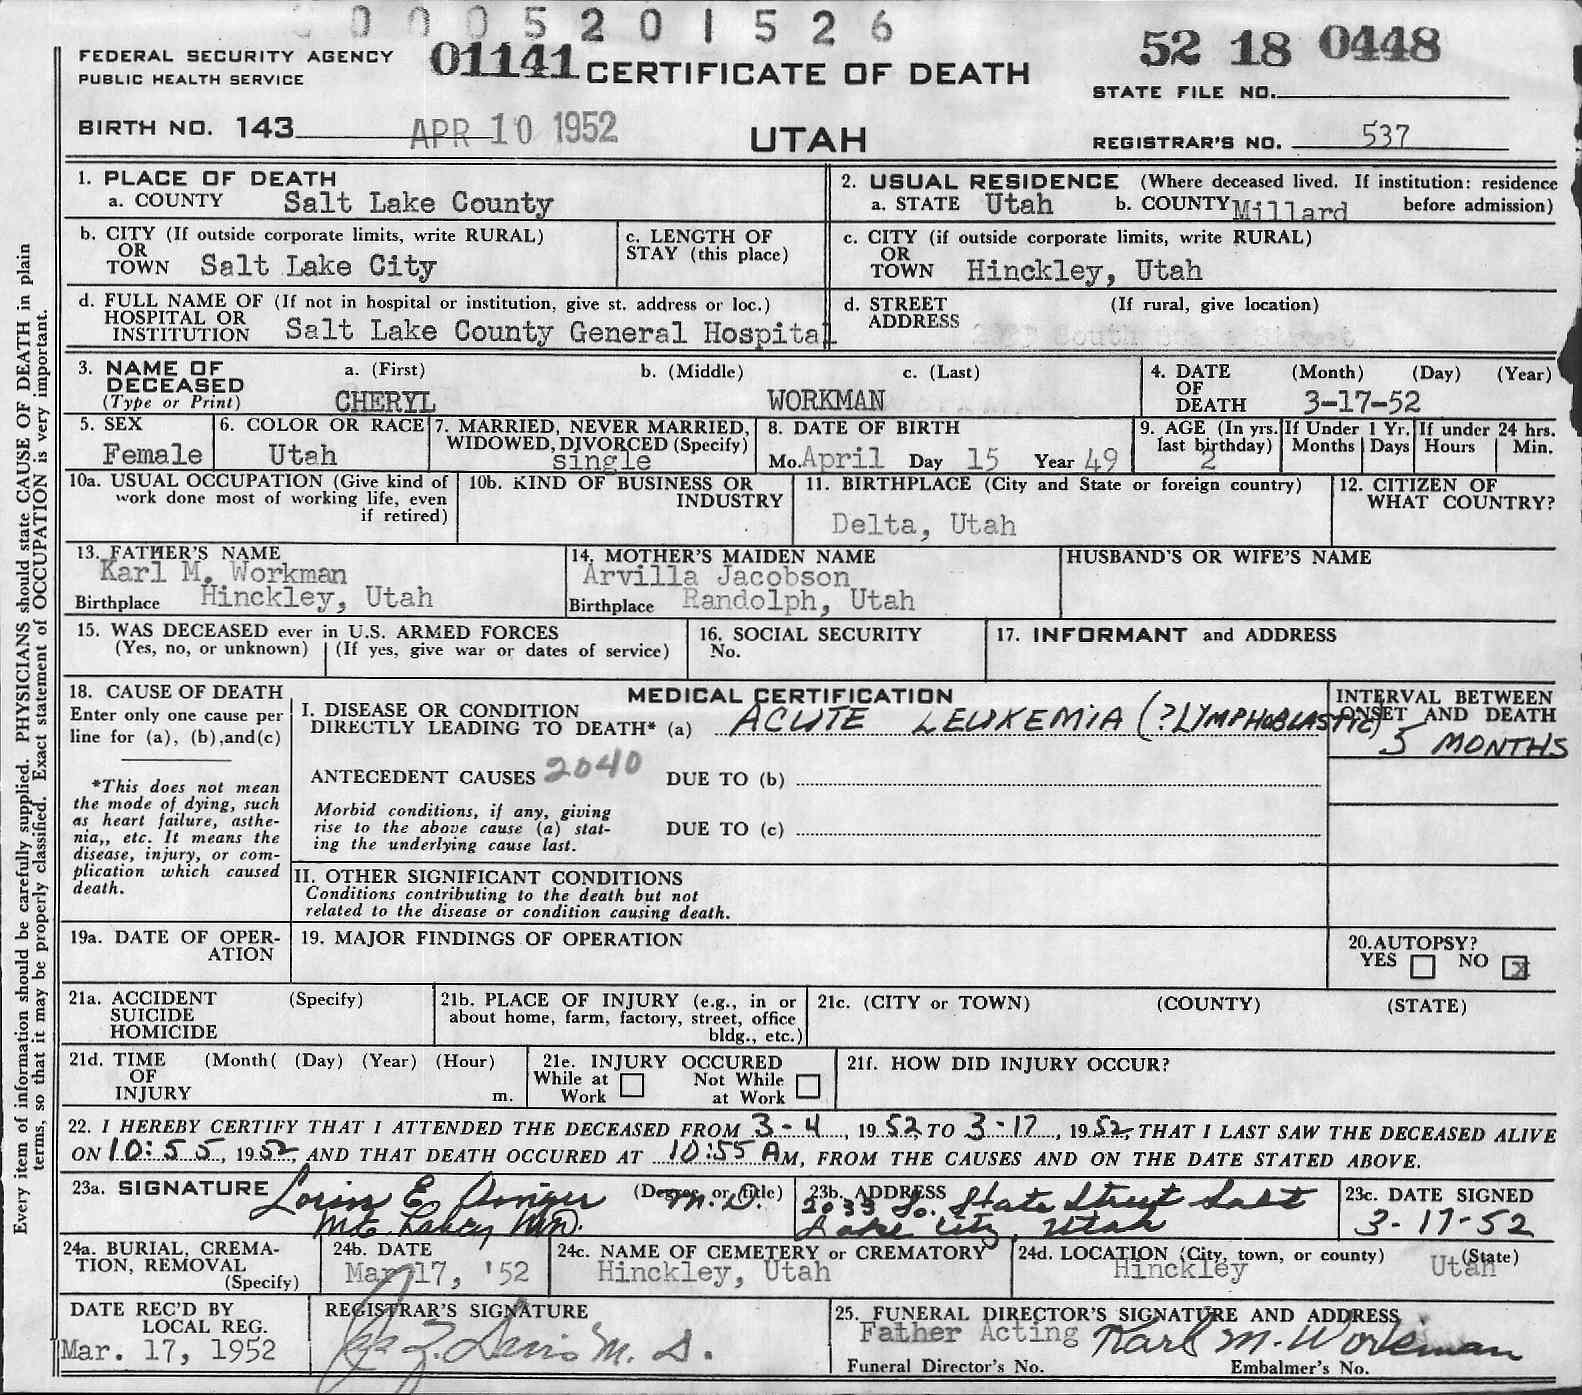 0005201526
FEDERAL SECURITY AGENCY
PUBLIC HEALTH SERVICE
01141 CERTIFICATE OF DEATH
52 18 0448
STATE FILE NO.
BIRTH NO. 143 APR 10 1952
UTAH
REGISTRAR'S NO. 537
1. PLACE OF DEATH
a. COUNTY Salt Lake County
2. USUAL RESIDENCE (Where deceased lived. If institution: residence
a. STATE Utah b. COUNTY Millard before admission)
b. CITY (If outside corporate limits, write RURAL)
OR
TOWN Salt Lake City
c. LENGTH OF
STAY (this place)
c. CITY (if outside corporate limits, write RURAL)
OR
TOWN Hinckley, Utah
d. FULL NAME OF (If not in hospital or institution, give st. address or loc.)
HOSPITAL OR
INSTITUTION Salt Lake County General Hospital
d. STREET (If rural, give location)
ADDRESS South State Street
3. NAME OF a. (First) b. (Middle) c. (Last)
DECEASED
(Type or Print) CHERYL WORKMAN
4. DATE (Month) (Day) (Year)
OF
DEATH 3-17-52
5. SEX
Female
6. COLOR OR RACE
Utah
7. MARRIED, NEVER MARRIED,
WIDOWED, DIVORCED (Specify)
single
8. DATE OF BIRTH
Mo. April Day 15 Year 49
9. AGE (In yrs.
last birthday)
2
If Under 1 Yr.
Months Days
If under 24 hrs.
Hours Min.
10a. USUAL OCCUPATION (Give kind of
work done most of working life, even
if retired)
10b. KIND OF BUSINESS OR
INDUSTRY
11. BIRTHPLACE (City and State or foreign country)
Delta, Utah
12. CITIZEN OF
WHAT COUNTRY?
13. FATHER'S NAME
Karl M. Workman
Birthplace Hinckley, Utah
14. MOTHER'S MAIDEN NAME
Arvilla Jacobson
Birthplace Randolph, Utah
HUSBAND'S OR WIFE'S NAME
15. WAS DECEASED ever in U.S. ARMED FORCES
(Yes, no, or unknown) (If yes, give war or dates of service)
16. SOCIAL SECURITY
No.
17. INFORMANT and ADDRESS
18. CAUSE OF DEATH
Enter only one cause per
line for (a), (b),and(c)
*This does not mean
the mode of dying, such
as heart failure, asthe-
nia,, etc. It means the
disease, injury, or com-
plication which caused
death.
MEDICAL CERTIFICATION
I. DISEASE OR CONDITION
DIRECTLY LEADING TO DEATH* (a) ACUTE LEUKEMIA (?LYMPHOBLASTIC)
INTERVAL BETWEEN
ONSET AND DEATH
5 MONTHS
ANTECEDENT CAUSES 2040 DUE TO (b)
Morbid conditions, if any, giving
rise to the above cause (a) stat-
ing the underlying cause last.
DUE TO (c)
II. OTHER SIGNIFICANT CONDITIONS
Conditions contributing to the death but not
related to the disease or condition causing death.
19a. DATE OF OPER-
ATION
19. MAJOR FINDINGS OF OPERATION
20. AUTOPSY?
YES NO x
21a. ACCIDENT (Specify)
SUICIDE
HOMICIDE
21b. PLACE OF INJURY (e.g., in or
about home, farm, factory, street, office
bldg., etc.)
21c. (CITY or TOWN) (COUNTY) (STATE)
21d. TIME (Month( (Day) (Year) (Hour)
OF
INJURY m.
21e. INJURY OCCURED
While at Not While
Work at Work
21f. HOW DID INJURY OCCUR?
22. I HEREBY CERTIFY THAT I ATTENDED THE DECEASED FROM 3-4, 1952, TO 3-17, 1952, THAT I LAST SAW THE DECEASED ALIVE
ON 10:55, 1952, AND THAT DEATH OCCURED AT 10:55 AM, FROM THE CAUSES AND ON THE DATE STATED ABOVE.
23a. SIGNATURE Lorin E. (Degree or title) M.D.
Mt. Lakes,
23b. ADDRESS
2033 So. State Street Salt
Lake City, Utah
23c. DATE SIGNED
3-17-52
24a. BURIAL, CREMA-
TION, REMOVAL
(Specify)
24b. DATE
Mar 17, '52
24c. NAME OF CEMETERY or CREMATORY
Hinckley, Utah
24d. LOCATION (City, town, or county) (State)
Hinckley Utah
DATE REC'D BY
LOCAL REG.
Mar. 17, 1952
REGISTRAR'S SIGNATURE
Davis M. D.
25. FUNERAL DIRECTOR'S SIGNATURE AND ADDRESS
Father Acting Karl M. Workman
Funeral Director's No. Embalmer's No.
Every item of information should be carefully supplied. PHYSICIANS should state CAUSE OF DEATH in plain
terms, so that it may be properly classified. Exact statement of OCCUPATION is very important.